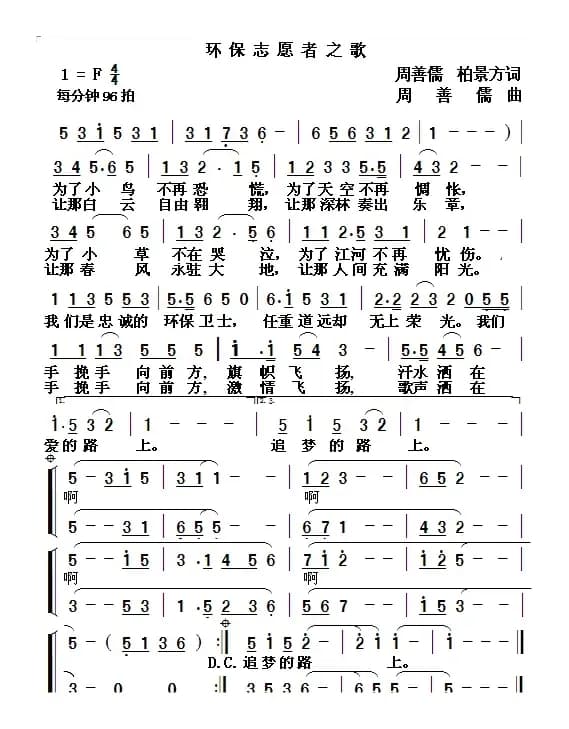 环保志愿者之歌
1=F 4/4 周善儒 柏景方词
每分钟96拍 周善儒曲
5 3 i 5 3 1 | i - - - | 3 1 7 3 6 - | 6 5 6 3 1 2 | 1 - - - )
3 4 5·6 5 | 1 3 2· 1 5 | 1 2 3 3 3 5·5 | 4 3 2 -
为了小鸟不再恐慌，为了天空不再惆怅，
让那白云自由翱翔，让那深林奏出乐章，
3 4 5 6 5 | 1 3 2· 5 6 | 1 1 2 3 3 5 5 | 2 3 1 -
为了小草不在哭泣，为了江河不再忧伤。
让那春风永驻大地，让那人间充满阳光。
1 1 3 5 5 3 | 5·5 6 5 0 | 6·i 5 3 1 | 2·2 2 3 2 0 5 5
我们是忠诚的环保卫士，任重道远却无上荣光。我们
1 1 1 3 | 5 5 5 - | i i·i 5 4 | 3 - | 5·5 4 5 6
手挽手向前方，旗帜飞扬，汗水洒在
手挽手向前方，激情飞扬，歌声洒在
1. 2.
i·5 3 2 | 1 - - - | 5 5 3 2 | 1 - - -
爱的路上。追梦的路上。
5 - 3 i 5 | 3 1 1 - | 3 - 1 2 3 | 6 5 2 -
啊 啊
5 - - 3 1 | 6 5 5 - | 6 7 1 - | 4 3 2 -
5 - 3 i 5 | 3·1 4 5 6 | 7 i 2 - | i - - -
啊 啊
3 - - 3 5 | 1·5 2 3 6 | 5 6 7 - | 5 - - -
5 - ( 5 1 3 6 ) :‖ 5 i 5 i | - 2 i i | i - - ‖
D.C.追梦的路上。
3 - 0 0 :‖